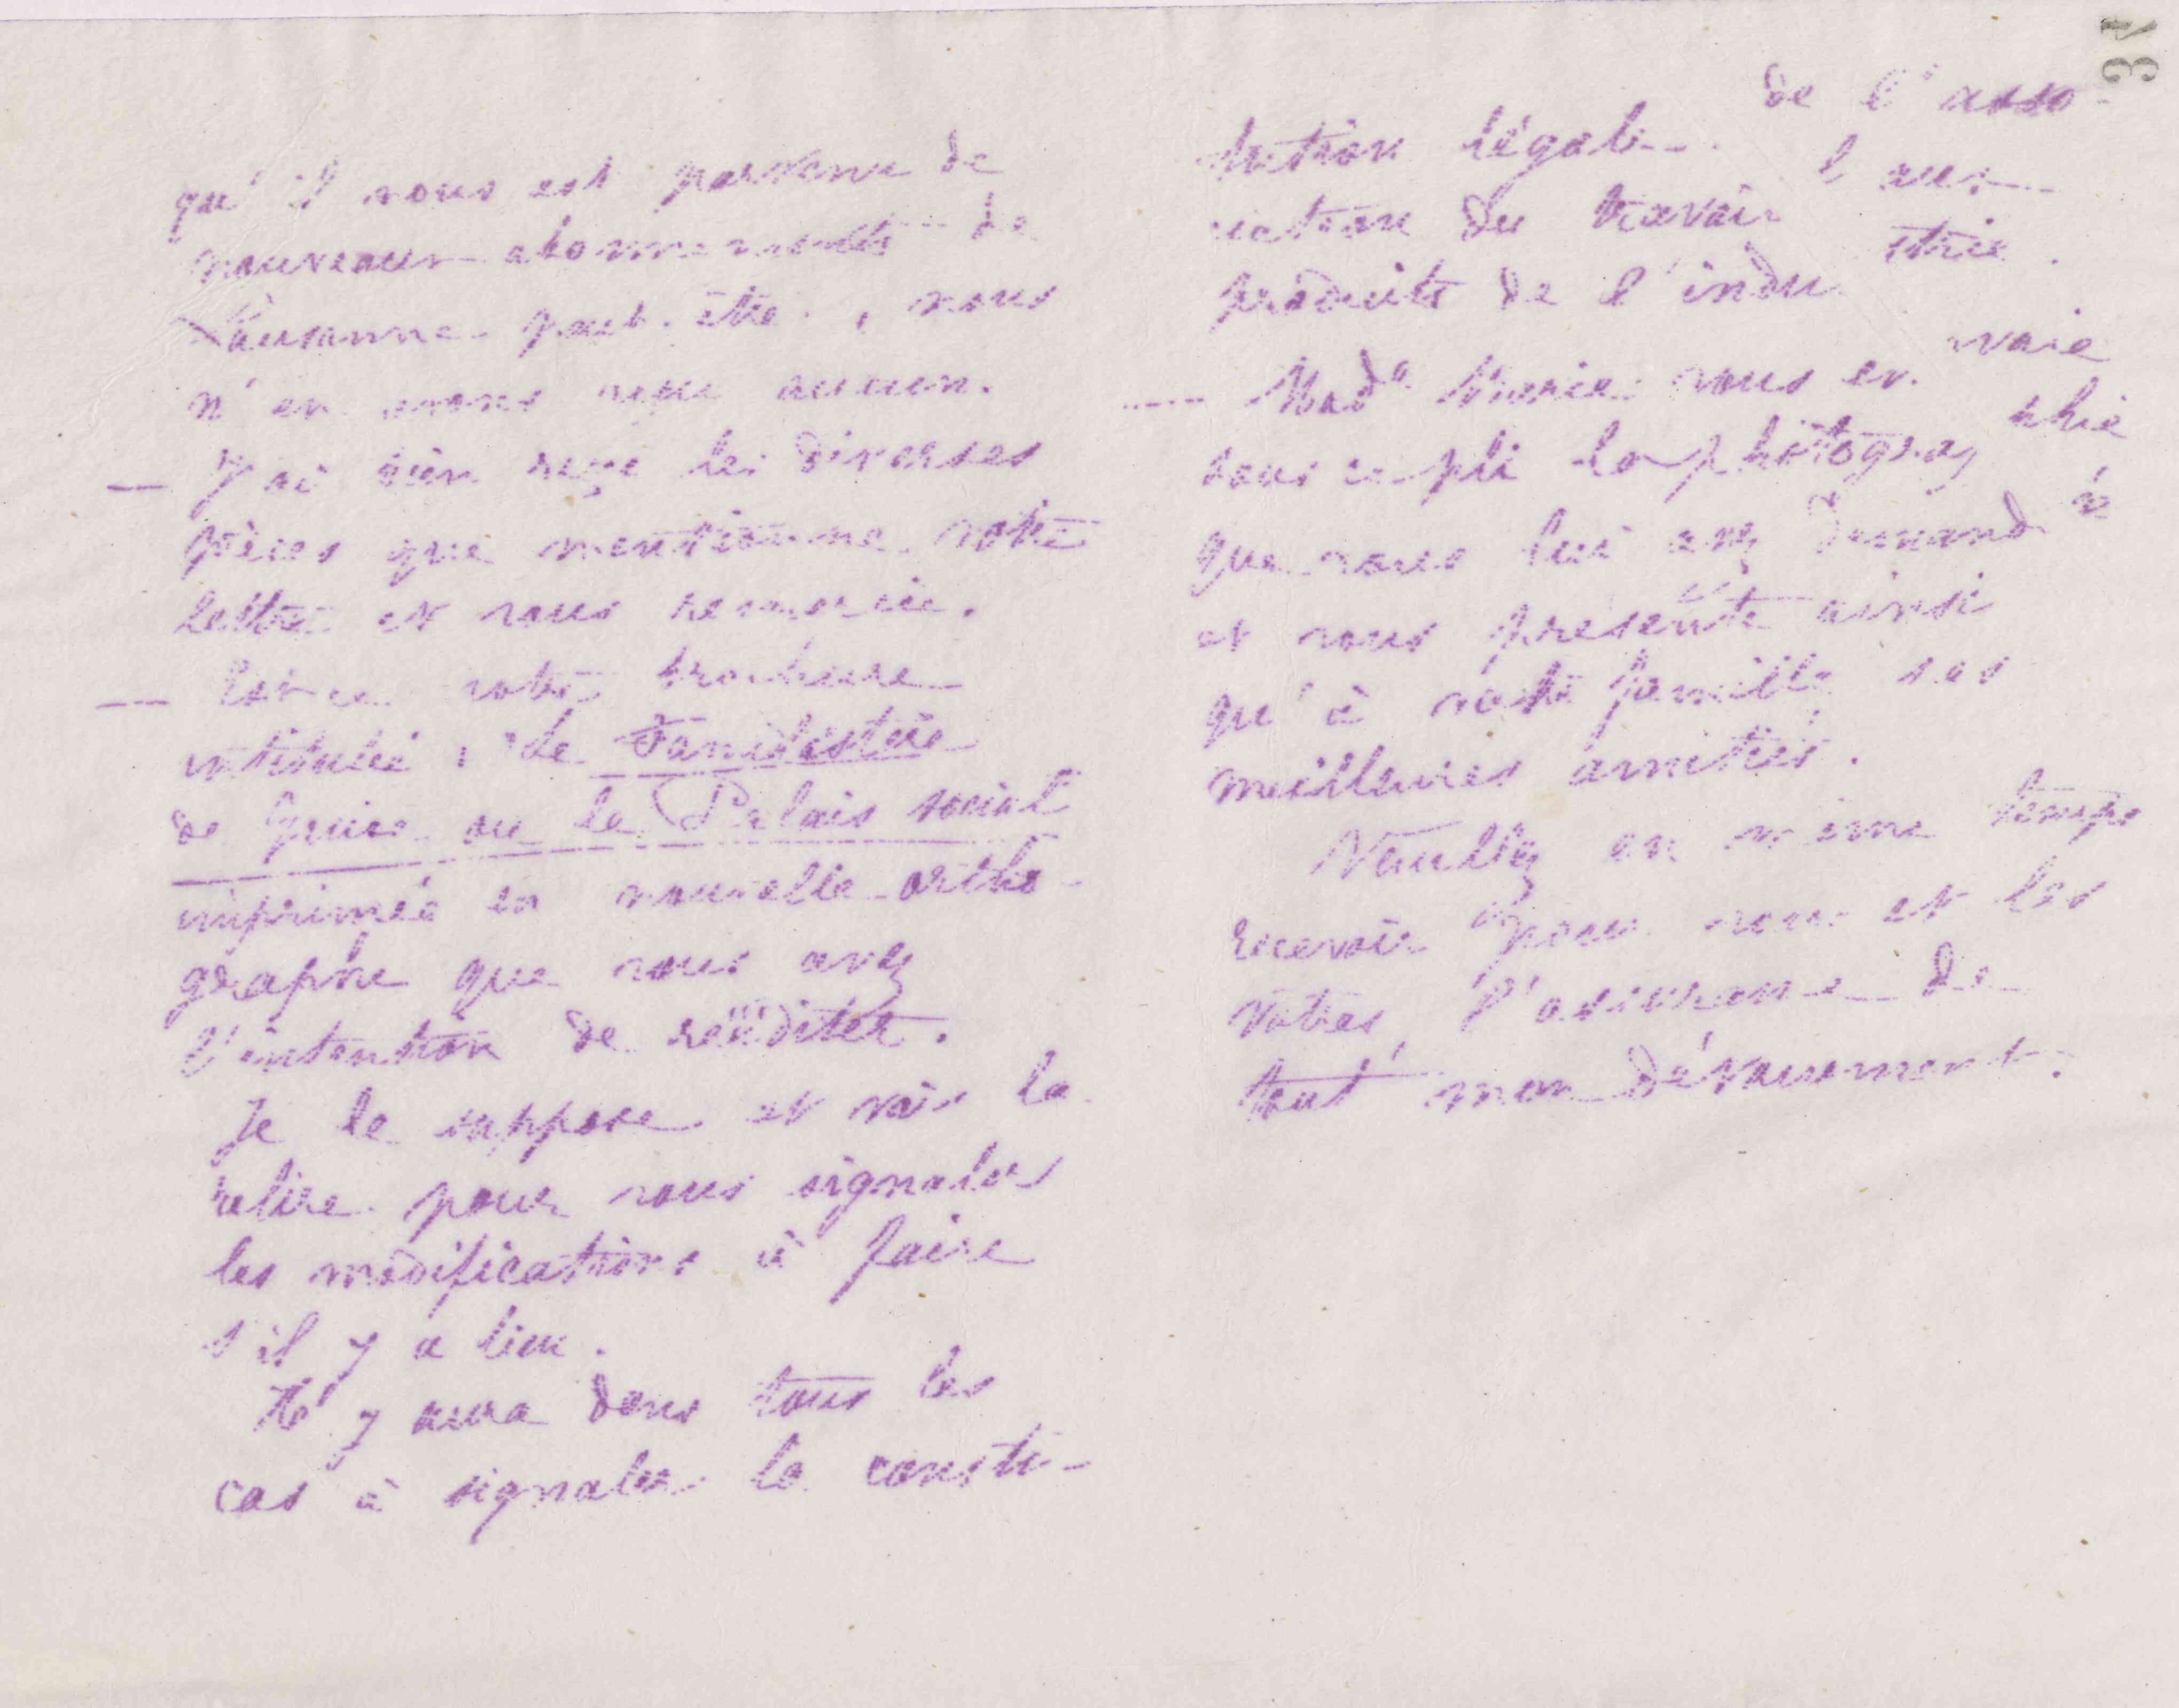 qu'il nous est parvenu de
nouveaux abonnements de
Lausanne peut-être, nous
n'en avons reçu aucun.
— J'ai bien reçu les diverses
pièces que mentionne votre
lettre et vous remercie.
— Est-ce votre brochure
intitulée : "Le Familistère
de Guise ou le Palais social
imprimée en nouvelle ortho-
graphe que vous avez
l'intention de rééditer.
Je le suppose et vais la
relire pour vous signaler
les modifications à faire
s'il y a lieu.
Il y aura dans tous les
cas à signaler la consti-
tution légale de l'asso-
ciation du travail aux
produits de l'industrie.
— Made Marie vous envoie
sous ce pli la photographie
que vous lui avez demandé
et vous présente ainsi
qu'à votre famille ses
meilleures amitiés.
Veuillez en même temps
recevoir pour vous et les
vôtres l'assurance de
tout mon dévouement.